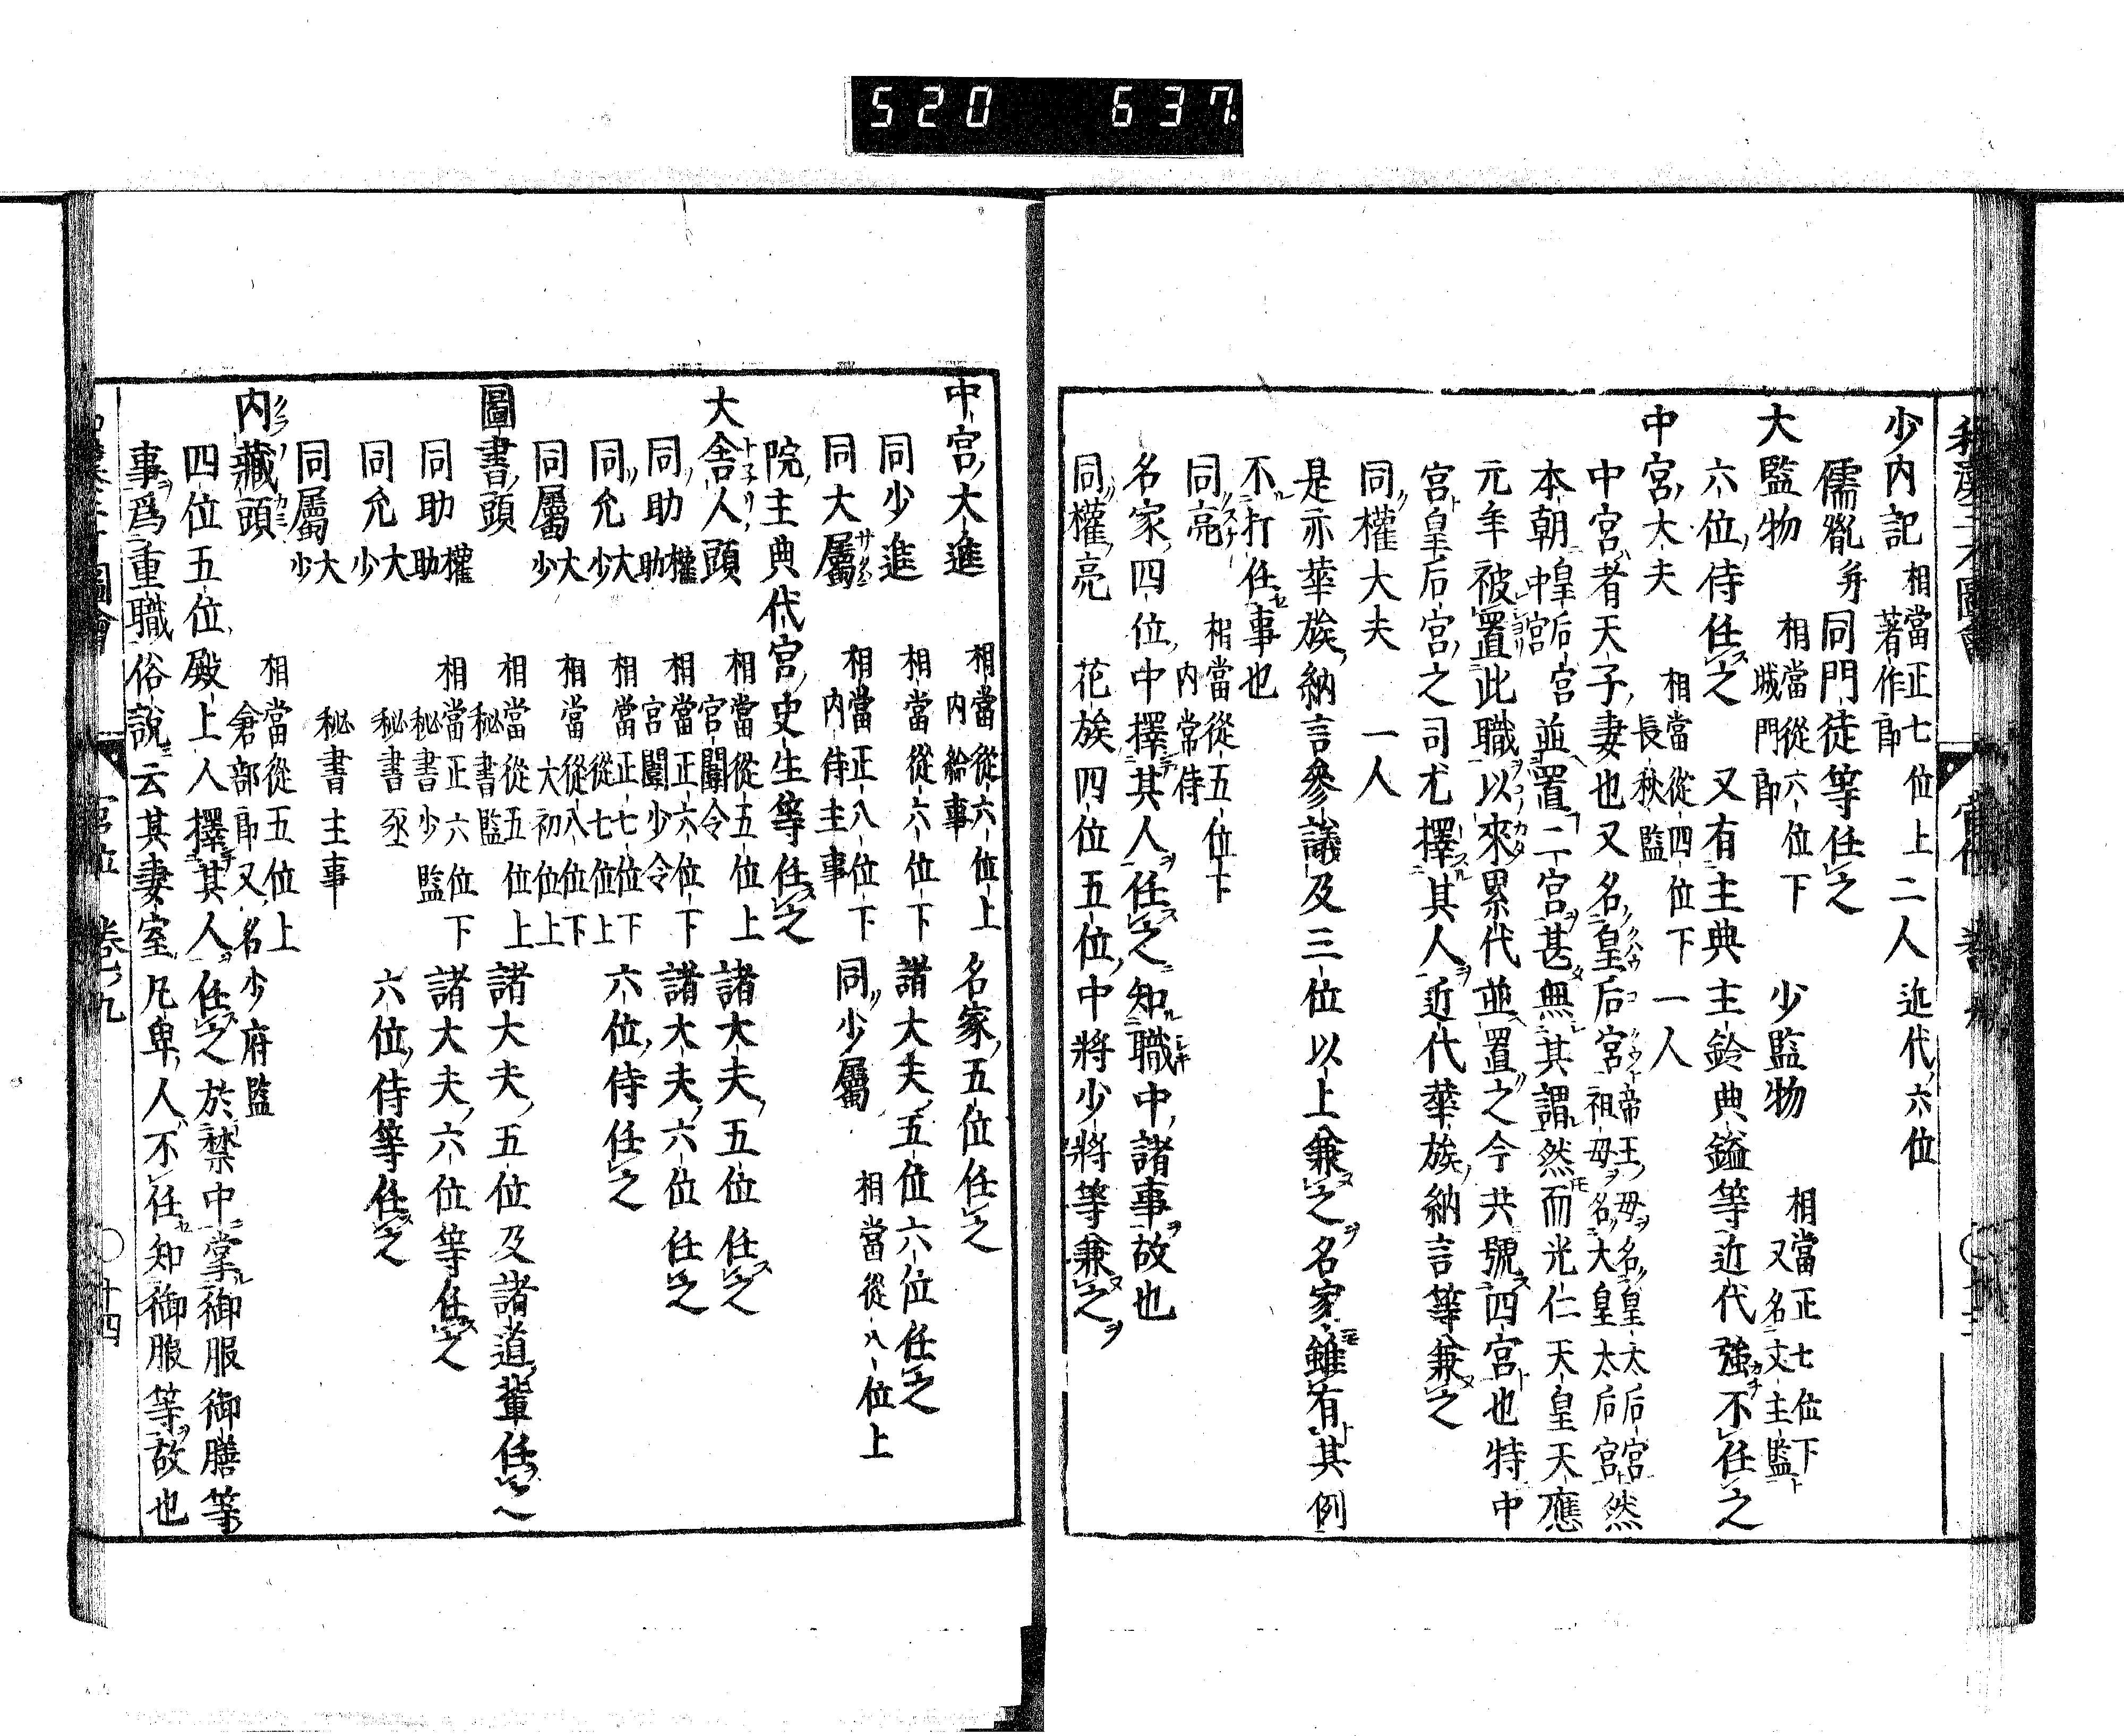 520 637.
少内記 相當正七位上二人 近代六位
著作郎
儒胤并同門徒等任之
大監物 相當從六位下 少監物 相當正七位下
城門郎 又名文主監
六位侍任之 又有主典主鈴典鎰等近代強不任之
中宮大夫 相當從四位下 一人
長秋監
中宮者天子妻也又名皇后宮 帝王母名皇太后宮 然
祖母名大皇太后宮
本朝皇后宮中宮並置二宮甚無其謂然而光仁天皇天應
元年被置此職以來累代並置之今共號四宮也特中
宮皇后宮之司尤擇其人近代華族納言等兼之
同權大夫 一人
是亦華族納言參議及三位以上兼之名家雖有其例
不打任事也
同亮 相當從五位下
内常侍
名家四位中擇其人任之知職中諸事故也
同權亮 花族四位五位中將少將等兼之
中宮大進 相當從六位上 名家五位任之
内給事
同少進 相當從六位下 諸大夫五位六位任之
同大屬 相當正八位下 同少屬 相當從八位上
内侍主事
院主典代宮史生等任之
大舎人頭 相當從五位上 諸大夫五位任之
宮闈令
同助 權助 相當正六位下 諸大夫六位任之
宮闈少令
同允 大少 相當正七位下 六位侍任之
從七位上
同屬 大少 相當從八位下
大初位上
圖書頭 相當從五位上 諸大夫五位及諸道輩任之
秘書監
同助 權助 相當正六位下 諸大夫六位等任之
秘書少監
同允 大少 秘書丞 六位侍等任之
同屬 大少 秘書主事
内藏頭 相當從五位上
倉部郎又名少府監
四位五位殿上人擇其人任之於禁中掌御服御膳等
事爲重職俗説云其妻室凡卑人不任知御服等故也
官位 卷九 〇十四